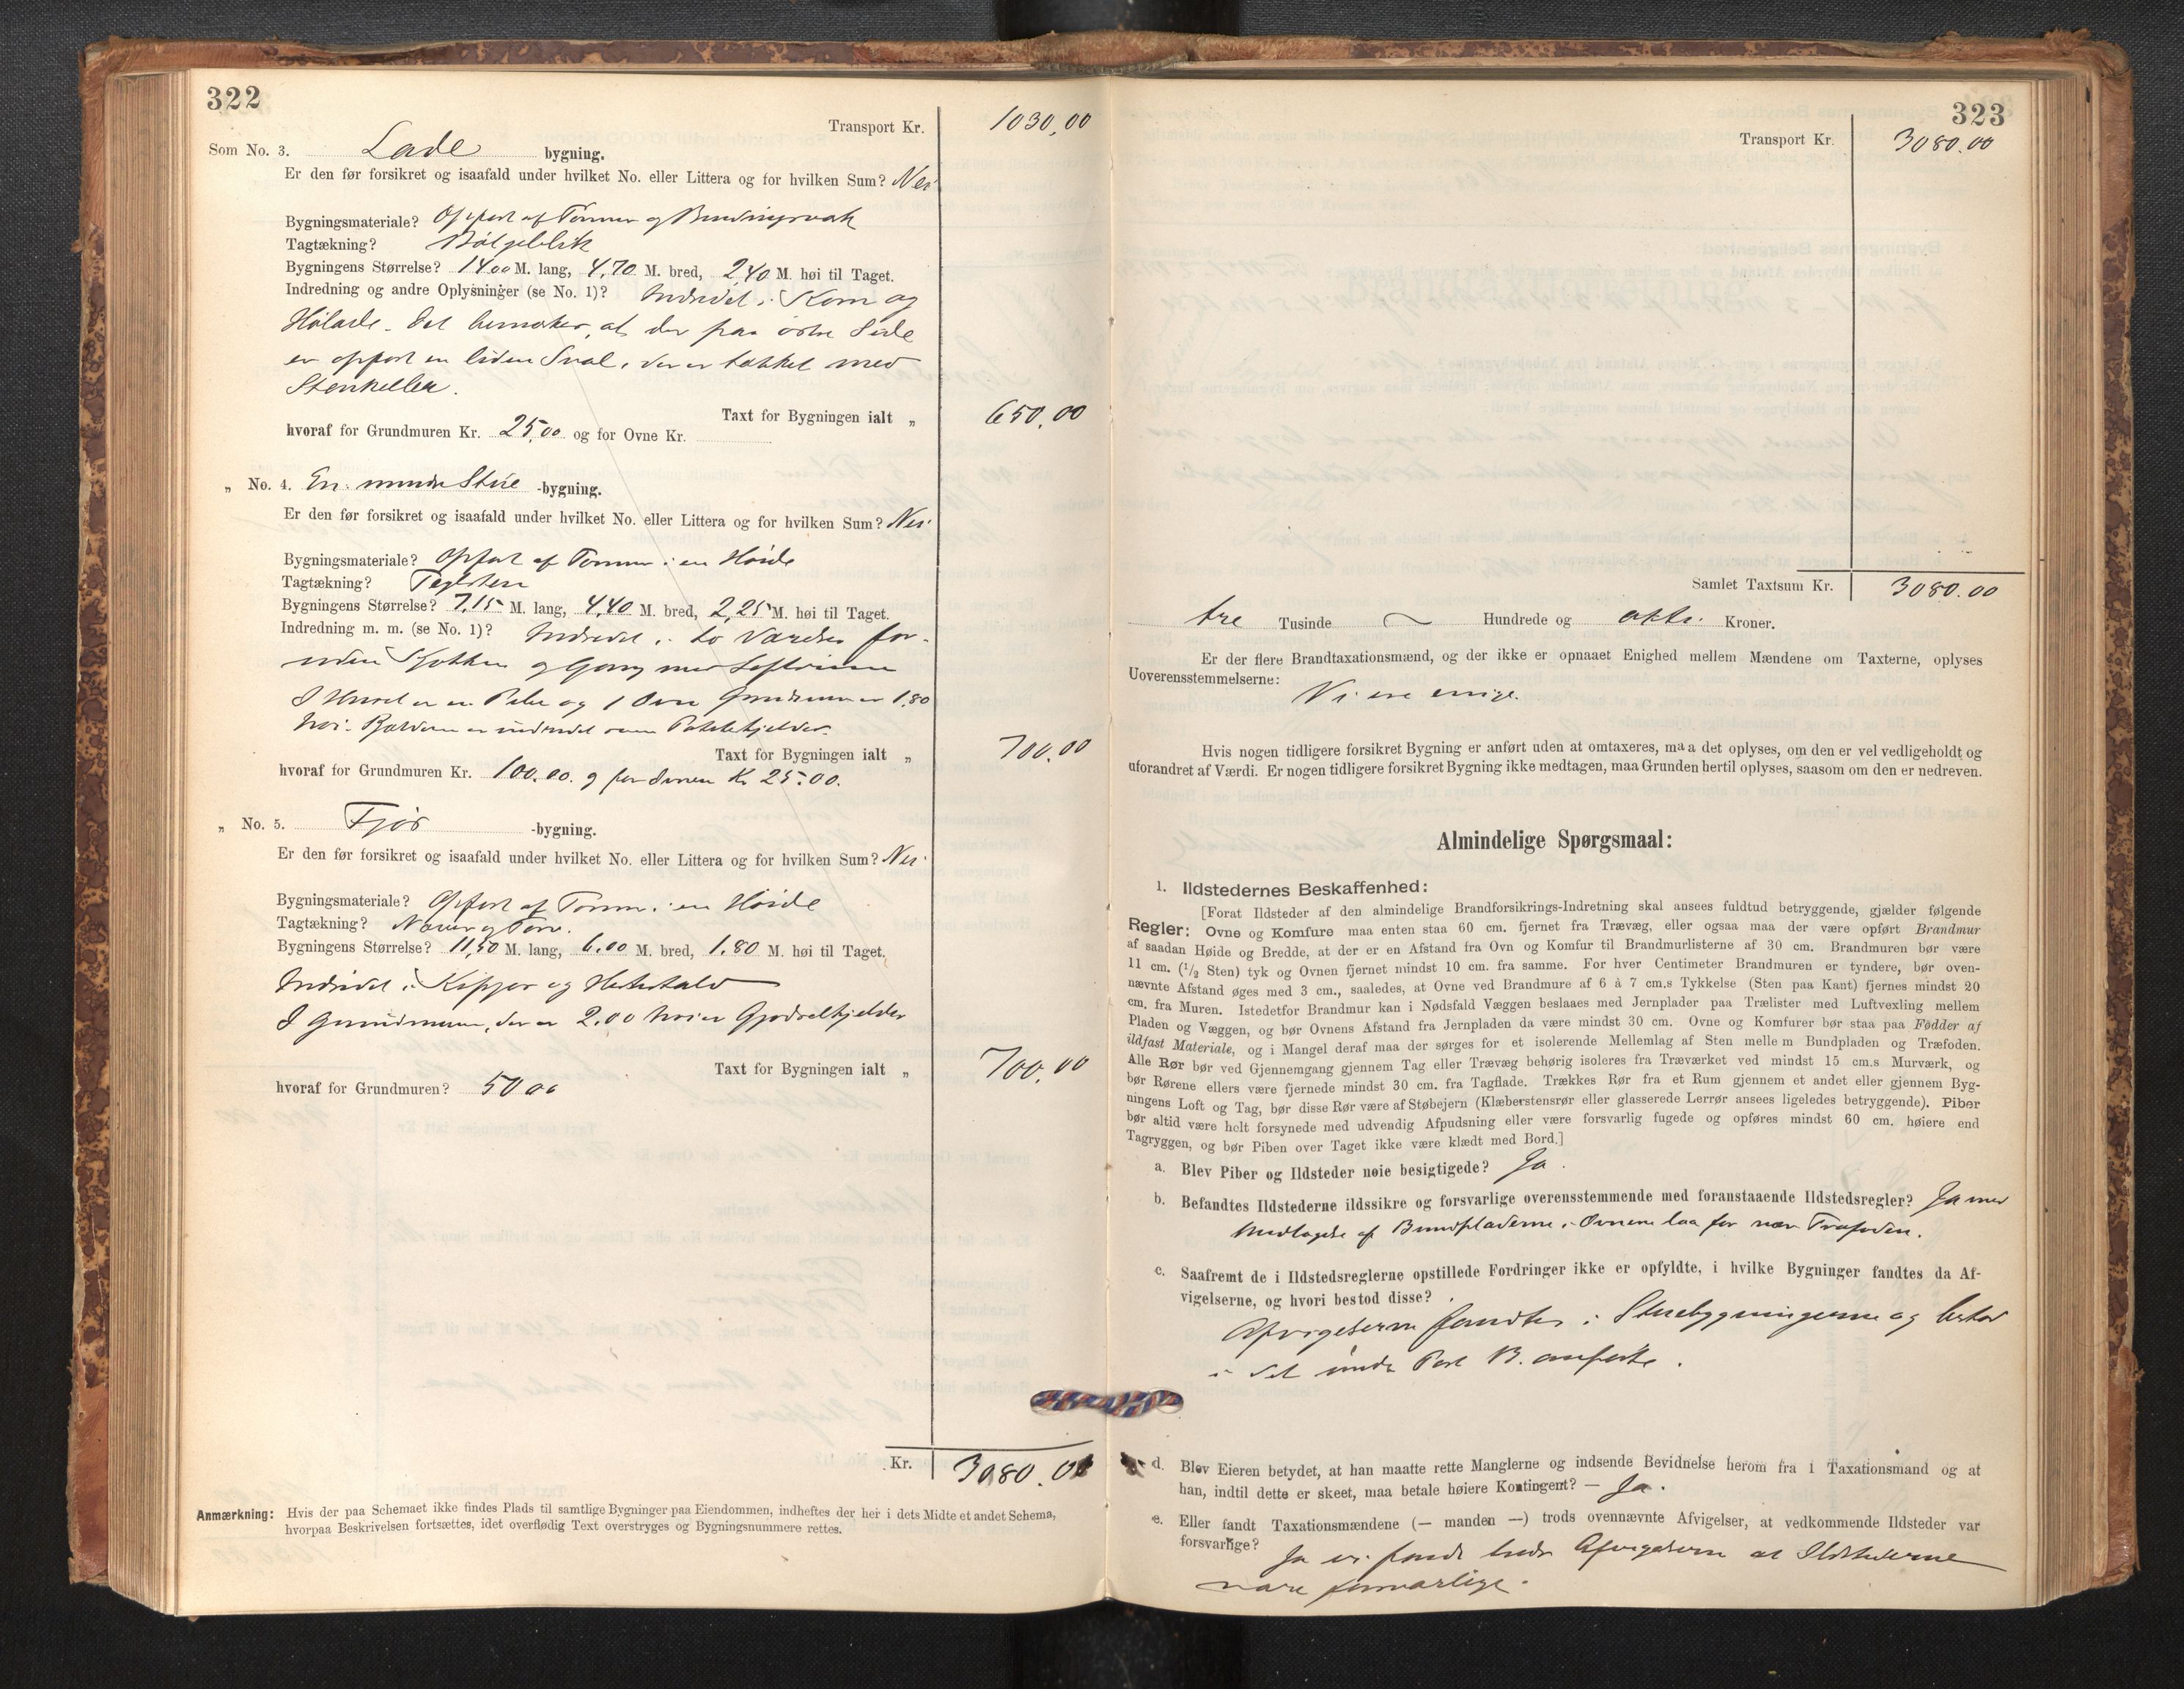 322
Transport Kr. 1030,00
Som No. 3. Lade bygning.
Er den før forsikret og isaafald under hvilket No. eller Littera og for hvilken Sum? Nei
Bygningsmateriale? Opført af Tømmer og Bindingsværk
Tagtækning? Bølgeblik
Bygningens Størrelse? 14.00 M. lang, 4,70 M. bred, 2,40 M. høi til Taget.
Indredning og andre Oplysninger (se No. 1)? Indredet i Korn og
Hølade. Det bemærkes, at der paa østre Side
er opført en liden Sval, der er tækket med
Stenheller.
Taxt for Bygningen ialt „ 650,00
hvoraf for Grundmuren Kr. 25,00 og for Ovne Kr.
„ No. 4. En mindre Stue -bygning.
Er den før forsikret og isaafald under hvilket No. eller Littera og for hvilken Sum? Nei
Bygningsmateriale? Opført af Tømmer i en Høide
Tagtækning? Teglsten
Bygningens Størrelse? 7,15 M. lang, 4,40 M. bred, 2,25 M. høi til Taget.
Indredning m. m. (se No. 1)? Indredet i to Værelser for-
uden Kjøkken og Gang med Loftsrum
I Huset er en Pibe og 1 Ovn Grundmuren er 1,80
høi. Kjælderen er indredet som Potetkjelder.
Taxt for Bygningen ialt „ 700,00
hvoraf for Grundmuren Kr. 100.00. og for Ovnen Kr 25.00.
„ No. 5. Fjøs -bygning.
Er den før forsikret og isaafald under hvilket No. eller Littera og for hvilken Sum? Nei
Bygningsmateriale? Opført af Tømmer i en Høide
Tagtækning? Næver og Torv.
Bygningens Størrelse? 11,50 M. lang, 6.00 M. bred, 1.80 M. høi til Taget.
Indredet i og Hestestald
I Grundmuren, der er 2.00 høi er Gjødselkjelder
Taxt for Bygningen ialt „ 700,00
hvoraf for Grundmuren? 50 00
Kr. 3080.00
Anmærkning: Hvis der paa Schemaet ikke findes Plads til samtlige Bygninger paa Eiendommen, indheftes der her i dets Midte et andet Schema,
hvorpaa Beskrivelsen fortsættes, idet overflødig Text overstryges og Bygningsnummere rettes.
323
Transport Kr. 3080.00
Samlet Taxtsum Kr. 3080.00
tre Tusinde Hundrede og otti Kroner.
Er der flere Brandtaxationsmænd, og der ikke er opnaaet Enighed mellem Mændene om Taxterne, oplyses
Uoverensstemmelserne:
Vi ere enige.
Hvis nogen tidligere forsikret Bygning er anført uden at omtaxeres, maa det oplyses, om den er vel vedligeholdt og
uforandret af Værdi. Er nogen tidligere forsikret Bygning ikke medtagen, maa Grunden hertil oplyses, saasom om den er nedreven.
Almindelige Spørgsmaal:
1. Ildstedernes Beskaffenhed:
[Forat Ildsteder af den almindelige Brandforsikrings-Indretning skal ansees fuldtud betryggende, gjælder følgende
Regler: Ovne og Komfure maa enten staa 60 cm. fjernet fra Trævæg, eller ogsaa maa der være opført Brandmur
af saadan Høide og Bredde, at der er en Afstand fra Ovn og Komfur til Brandmurlisterne af 30 cm. Brandmuren bør være
11 cm. (1/2 Sten) tyk og Ovnen fjernet mindst 10 cm. fra samme. For hver Centimeter Brandmuren er tyndere, bør oven-
nævnte Afstand øges med 3 cm., saaledes, at Ovne ved Brandmure af 6 à 7 cm.s Tykkelse (Sten paa Kant) fjernes mindst 20
cm. fra Muren. Istedetfor Brandmur kan i Nødsfald Væggen beslaaes med Jernplader paa Trælister med Luftvexling mellem
Pladen og Væggen, og bør Ovnens Afstand fra Jernpladen da være mindst 30 cm. Ovne og Komfurer bør staa paa Fødder af
ildfast Materiale, og i Mangel deraf maa der sørges for et isolerende Mellemlag af Sten mellem Bundpladen og Træfoden.
Alle Rør bør ved Gjennemgang gjennem Tag eller Trævæg behørig isoleres fra Træværket ved mindst 15 cm.s Murværk, og
bør Rørene ellers være fjernede mindst 30 cm. fra Tagflade. Trækkes Rør fra et Rum gjennem et andet eller gjennem Byg-
ningens Loft og Tag, bør disse Rør være af Støbejern (Klæberstensrør eller glasserede Lerrør ansees ligeledes betryggende). Piber
bør altid være helt forsynede med udvendig Afpudsning eller være forsvarlig fugede og opføres mindst 60 cm. høiere end
Tagryggen, og bør Piben over Taget ikke være klædt med Bord.]
a. Blev Piber og Ildsteder nøie besigtigede? Ja.
b. Befandtes Ildstederne ildssikre og forsvarlige overensstemmende med foranstaaende Ildstedsregler? Ja med
Undtagelse af Bundpladerne i Ovnene laa for nær Træfoden.
c. Saafremt de i Ildstedsreglerne opstillede Fordringer ikke er opfyldte, i hvilke Bygninger fandtes da Af-
vigelserne, og hvori bestod disse?
Afvigelserne fandtes i Stuebygningerne og bestod
i det under Post B. anførte.
d. Blev Eieren betydet, at han maatte rette Manglerne og indsende Bevidnelse herom fra 1 Taxationsmand og at
han, indtil dette er skeet, maa betale høiere Kontingent? — Ja.
e. Eller fandt Taxationsmændene (— manden —) trods ovennævnte Afvigelser, at vedkommende Ildsteder var
forsvarlige? Ja vi fandt trods Afvigelserne at Ildstederne
vare forsvarlige.